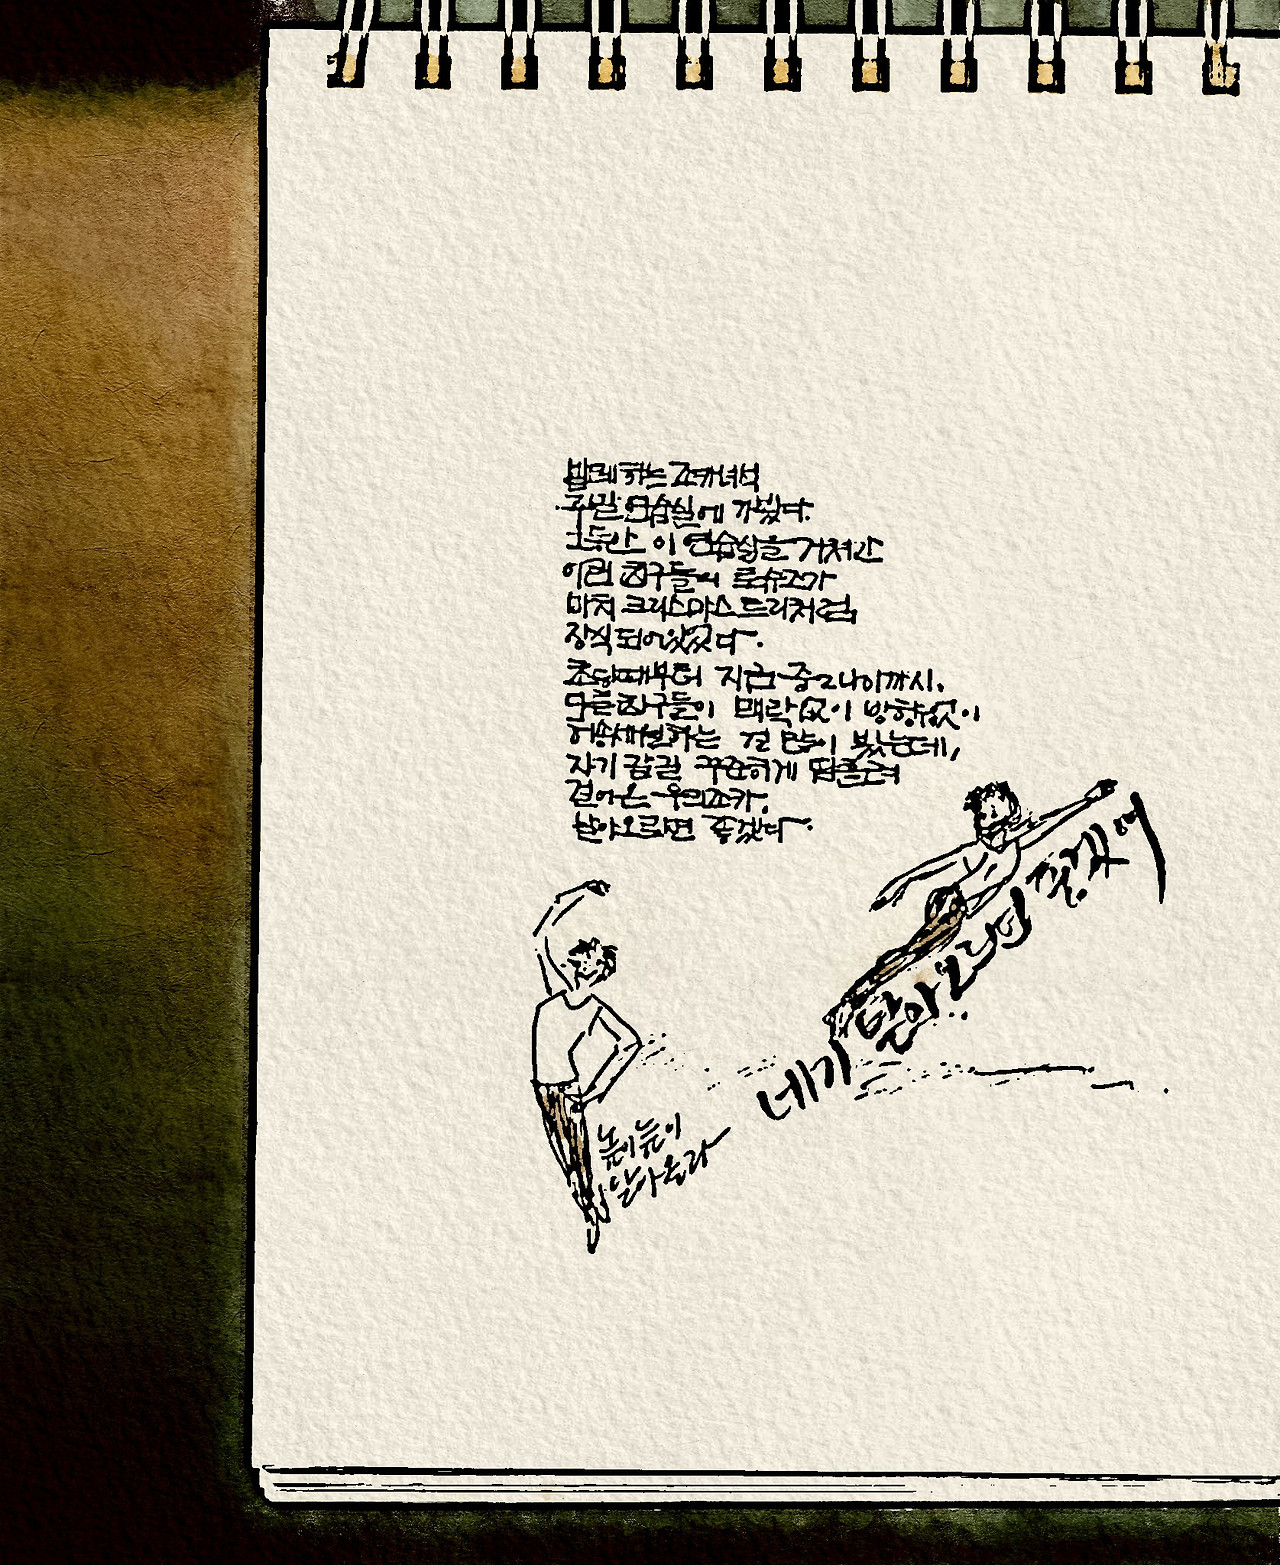 발레하는 조카녀석
주말 연습실에 가봤다.
그동안 이 연습실을 거쳐간
어린 친구들의 토슈즈가
마치 크리스마스트리처럼
장식되어있었다.
초딩때부터 지금 중2나이까지.
다른친구들이 맥락없이 방향없이
허송세월하는 건 많이 봤는데,
자기 갈길 꾸준하게 땀흘려
걸어는 우리조카.
날아오르면 좋겠다.
네가 날아오르면 좋겠어
높이높이
날아올라